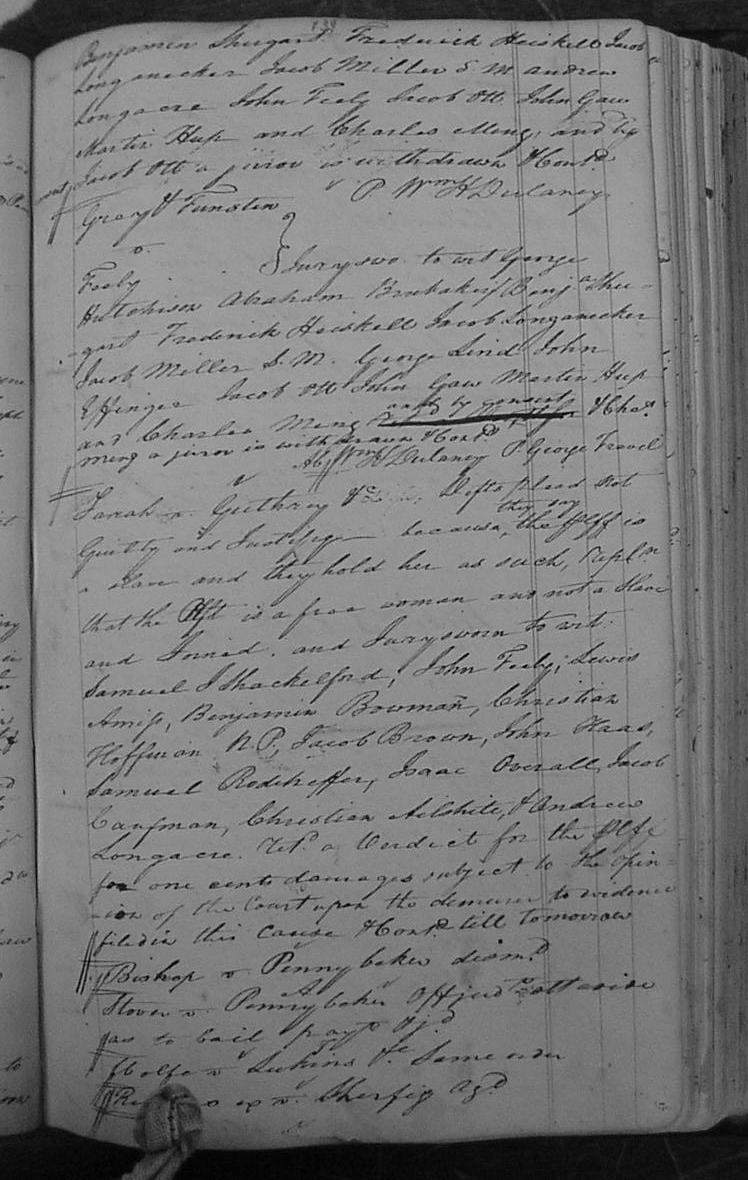 Benjamin Shugart Frederick Heiskell Jacob
Longanecker Jacob Miller S M Andrew
Longacre John Feely Jacob Ott John Gaw
Martin Hup and Charles Meng, and by
Jacob Ott a juror is withdrawn & Contd
P. Wm H Dulaney
Gray & Funsten
v.
Feely Jury swo. to wit George
Hutchison Abraham Brubaker Benja Shu-
gart Frederick Heiskell Jacob Longanecker
Jacob Miller S. M. George Lind John
Effinger Jacob Ott John Gaw Martin Hup
and Charles Meng and by consent & Chas.
Meng a juror is withdrawn & Contd
Wm H Dulaney P. George Travel
Sarah v. Guthrey &c Defts plead not
Guilty and Justify because, they say the plff is
a slave and they hold her as such, Repln
that the Plft is a free woman and not a slave
and Joined. and Jury sworn to wit:
Samuel J Shackelford, John Feely, Lewis
Amip, Benjamin Bowman, Christian
Hoffman N. P., Jacob Brown, John Haas,
Samuel Rodeheffer, Isaac Overall, Jacob
Caufman, Christian Ailshite, & Andrew
Longacre. Retd a Verdict for the Plff
for one cents damages subject to the opin-
-ion of the Court upon the demurer to evidence
filed in this cause & Contd till tomorrow
Bishop v Pennybaker dismd
Stover v. Pennybaker Off jud
as to bail
v Lukins &c Same order
v. Sherfig agd